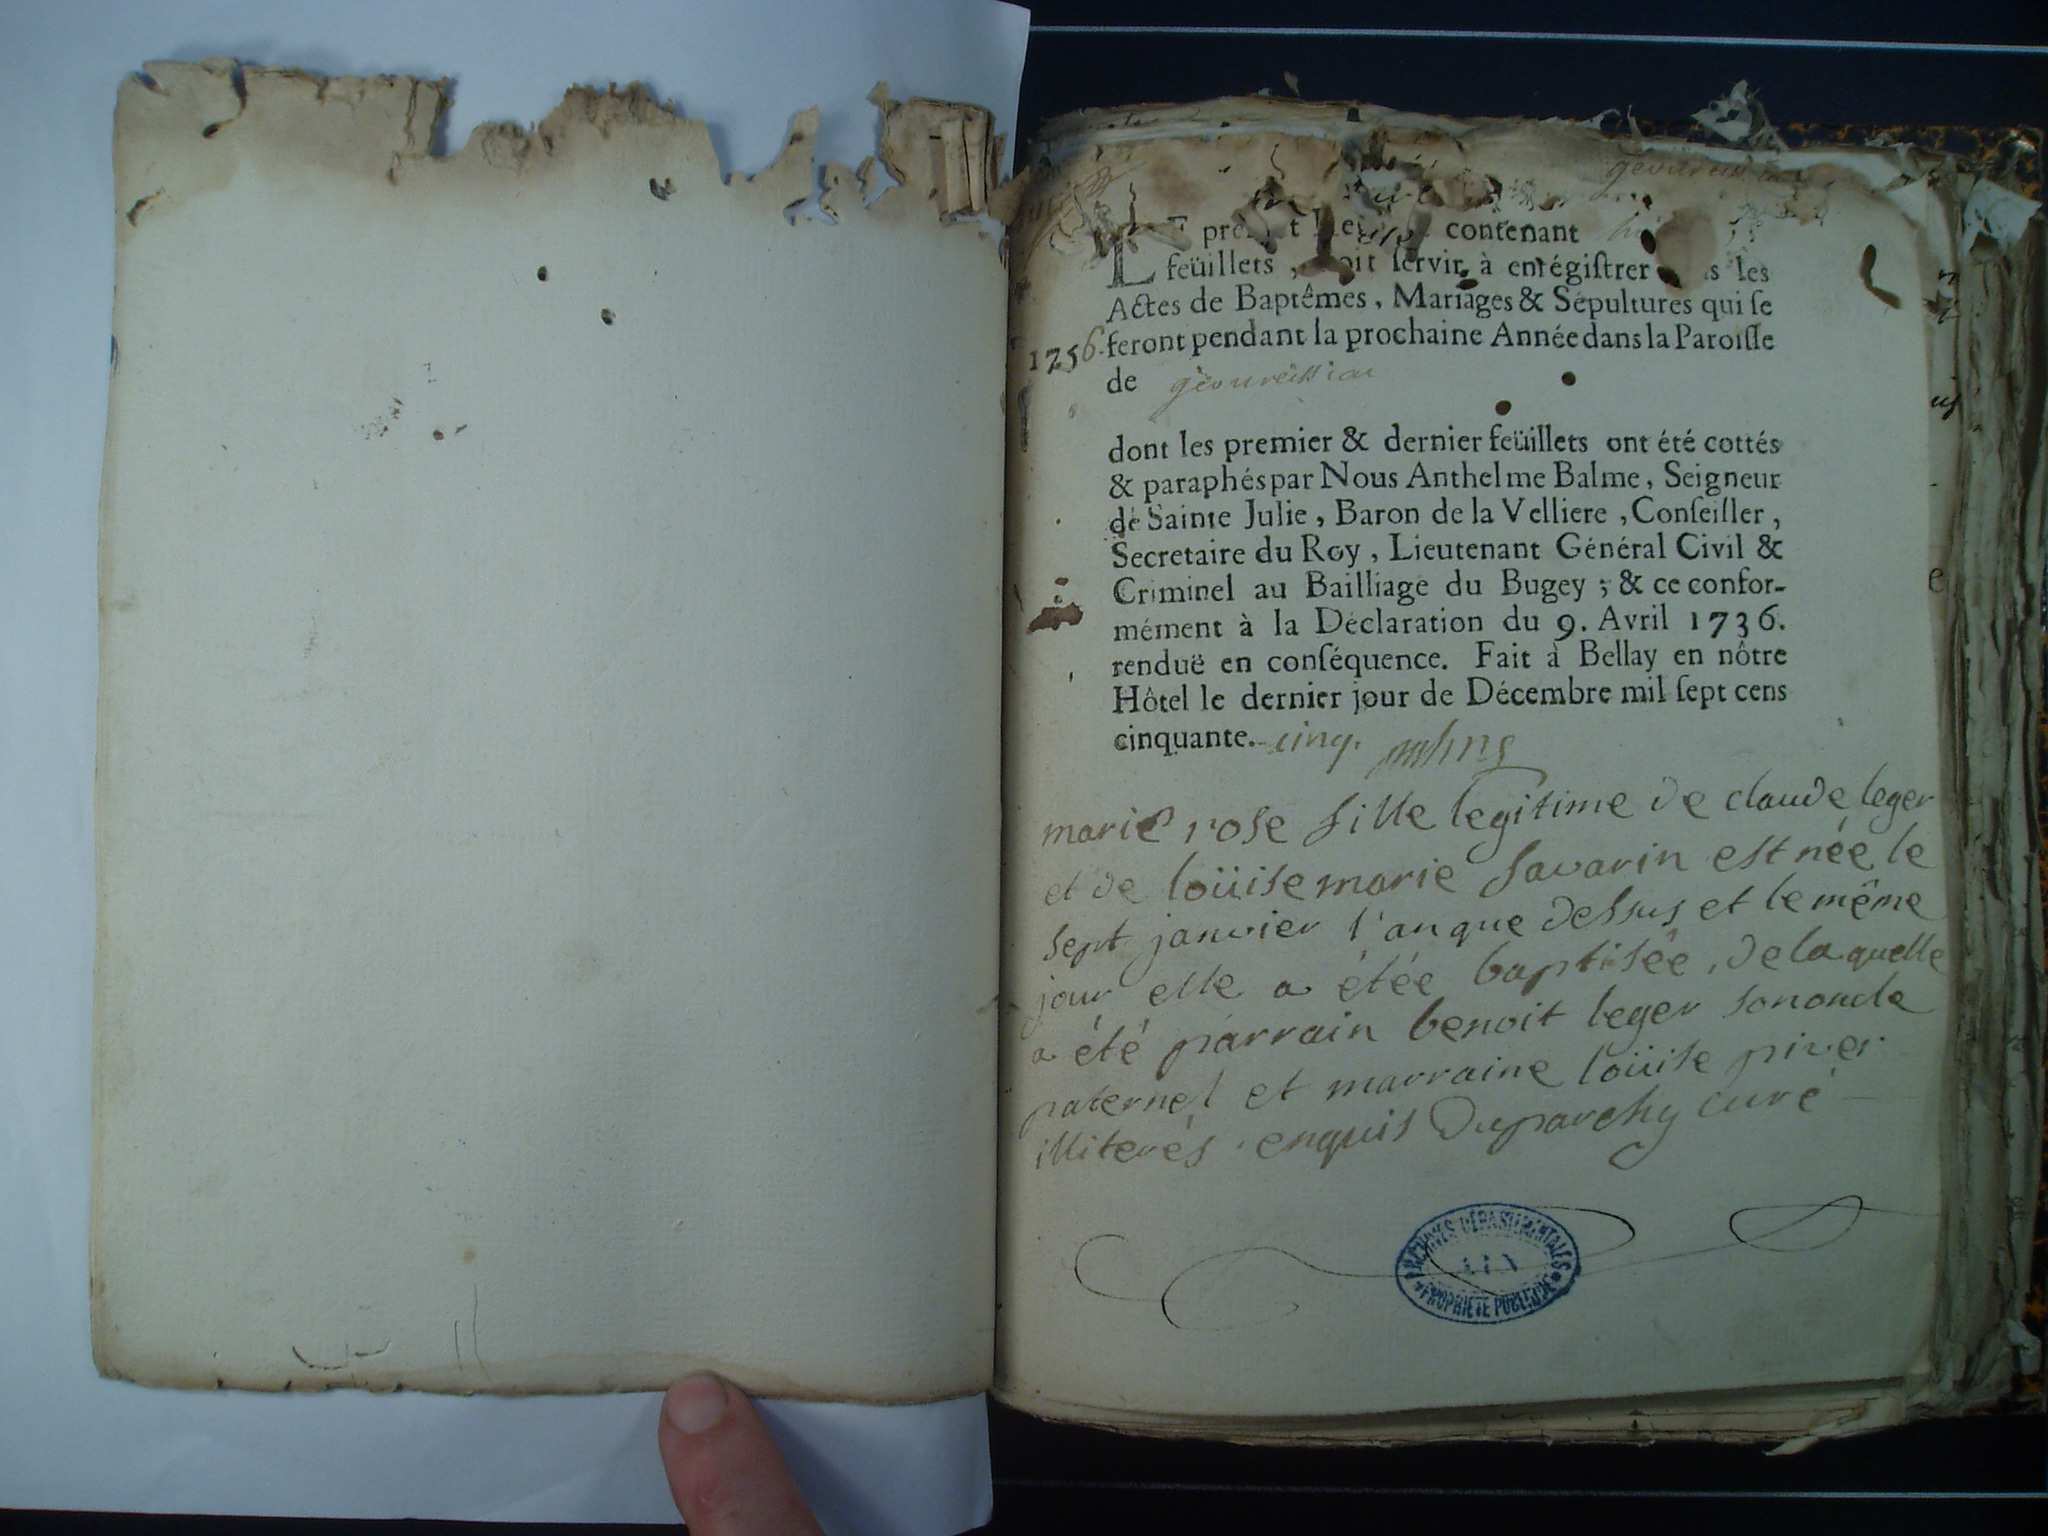 contenant
feüillets , doit servir à enrégistrer les
Actes de Baptêmes, Mariages & Sépultures qui se
1756. feront pendant la prochaine Année dans la Paroisse
de gevureissiat
dont les premier & dernier feüillets ont été cottés
& paraphés par Nous Anthelme Balme, Seigneur
de Sainte Julie, Baron de la Velliere, Conseiller,
Secretaire du Roy, Lieutenant Général Civil &
Criminel au Bailliage du Bugey ; & ce confor-
mément à la Déclaration du 9. Avril 1736.
renduë en conséquence. Fait à Bellay en nôtre
Hôtel le dernier jour de Décembre mil sept cens
cinquante. cinq.
marie rose fille legitime de claude leger
et de loüise marie Savarin est née le
sept janvier l'an que dessus et le même
jour elle a étée baptisée, de laquelle
a été parrain benoit leger son oncle
paternel et marraine loüise piver
illiterés enquis Duparchy curé
ARCHIVES DÉPARTEMENTALES
AIN
PROPRIÉTÉ PUBLIQUE